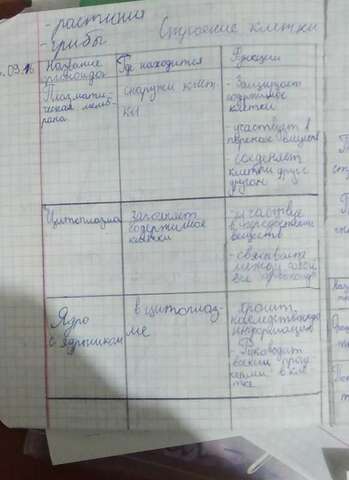 - растения
- грибы
Строение клетки
Название
органоидов
Где находится
Функции
Плазмати-
ческая мемб-
рана
снаружи клет-
ки
- Защищает
содержимое
клетки
- участвует в
переносе веществ
- соединяет
клетки друг с
другом
Цитоплазма
Заполняет
содержимое
клетки
- участвует
веществ
- связывает
между собой
все
Ядро
с ядрышком
в цитоплаз-
ме
- хранит
наследственную
информацию
- Руководит
всеми проц-
ессами в кле
тке